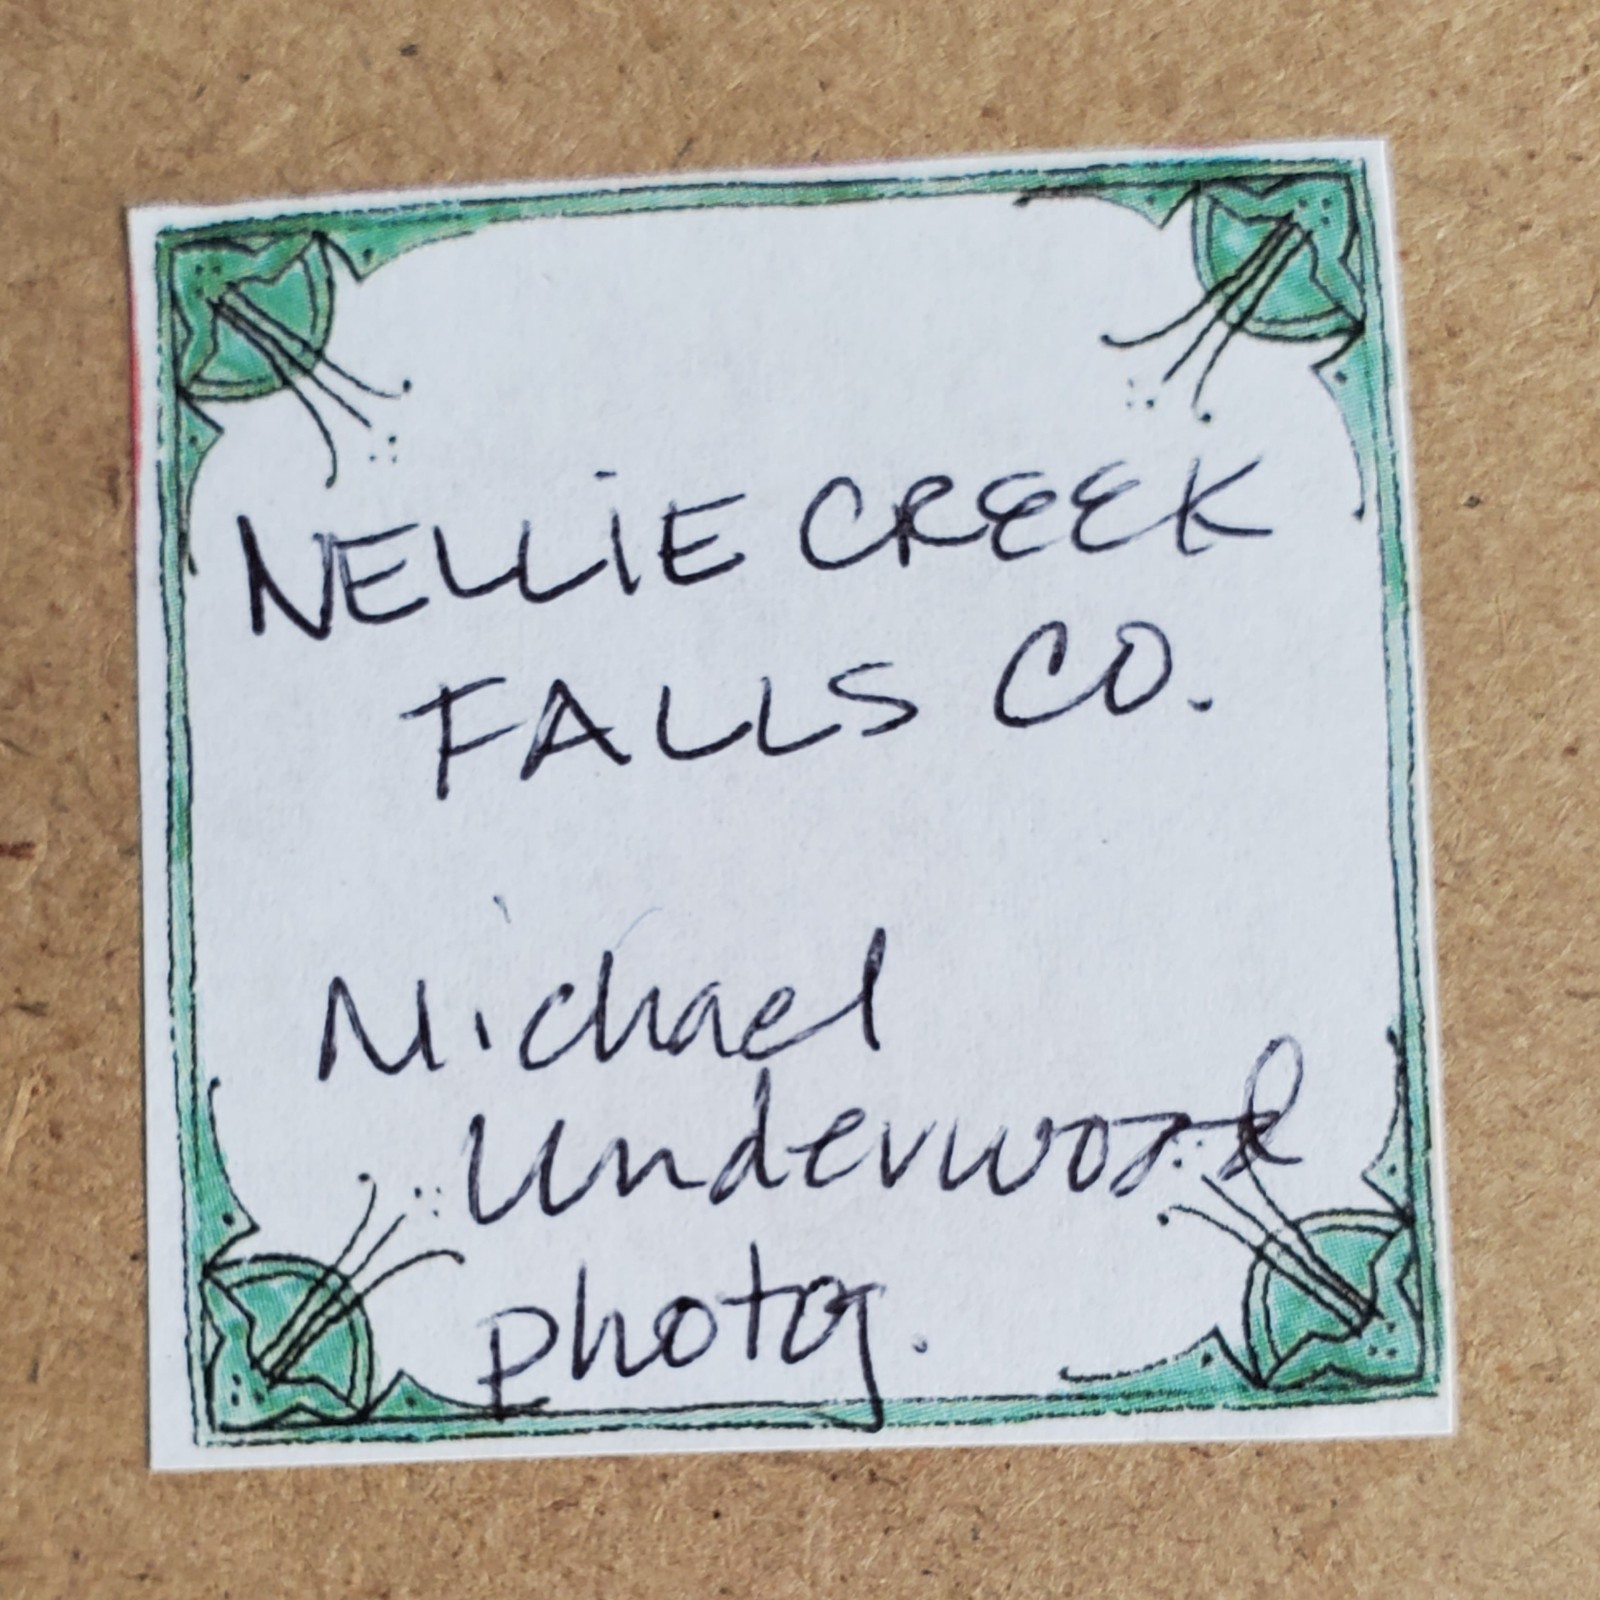 NELLIE CREEK
FALLS CO.
Michael
Underwood
photog.